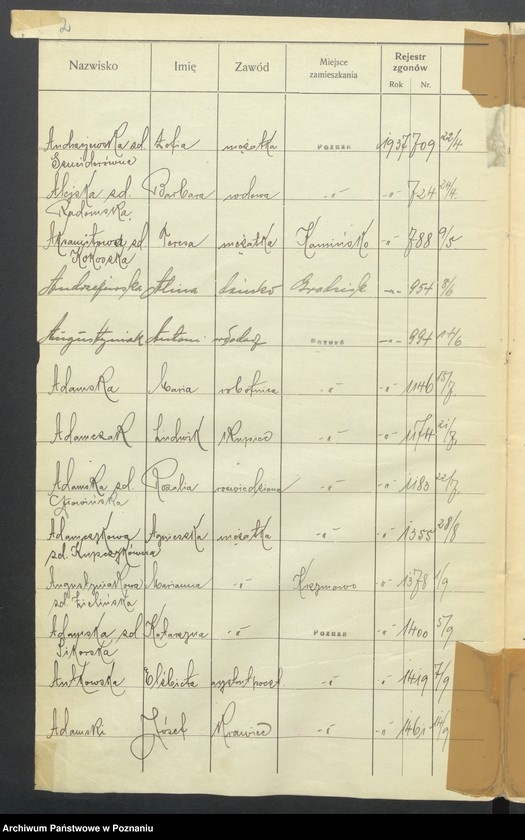 2
Nazwisko Imię Zawód Miejsce zamieszkania Rejestr zgonów Rok Nr.
Andrzejewska sd. Zofia mężatka POZNAŃ 1937 709 22/4
Sznajderówna
Alejska sd. Barbara wdowa -"- -"- 724 24/4
Radomska
sd. Teresa mężatka Kamińsko -"- 788 9/5
Kokoszka
Andrzejewska Alina dziecko -"- 954 8/6
Augustyniak Antoni POZNAŃ -"- 994 14/6
Adamska Maria robotnica -"- -"- 1146 15/7
Adamczak Ludwik kupiec -"- -"- 1174 21/7
Adamska sd. Rozalia rozwiedziona -"- -"- 1183 22/7
Adamczkowa Agnieszka mężatka -"- -"- 1355 28/8
sd. Kupczykówna
Augustyniakowa Marianna -"- -"- 1378 1/9
sd. Zielińska
Adamska sd. Katarzyna -"- POZNAŃ -"- 1400 5/9
Sikorska
Antkowska Elżbieta -"- -"- 1419 7/9
Adamski Józef krawiec -"- -"- 1461 14/9
Archiwum Państwowe w Poznaniu